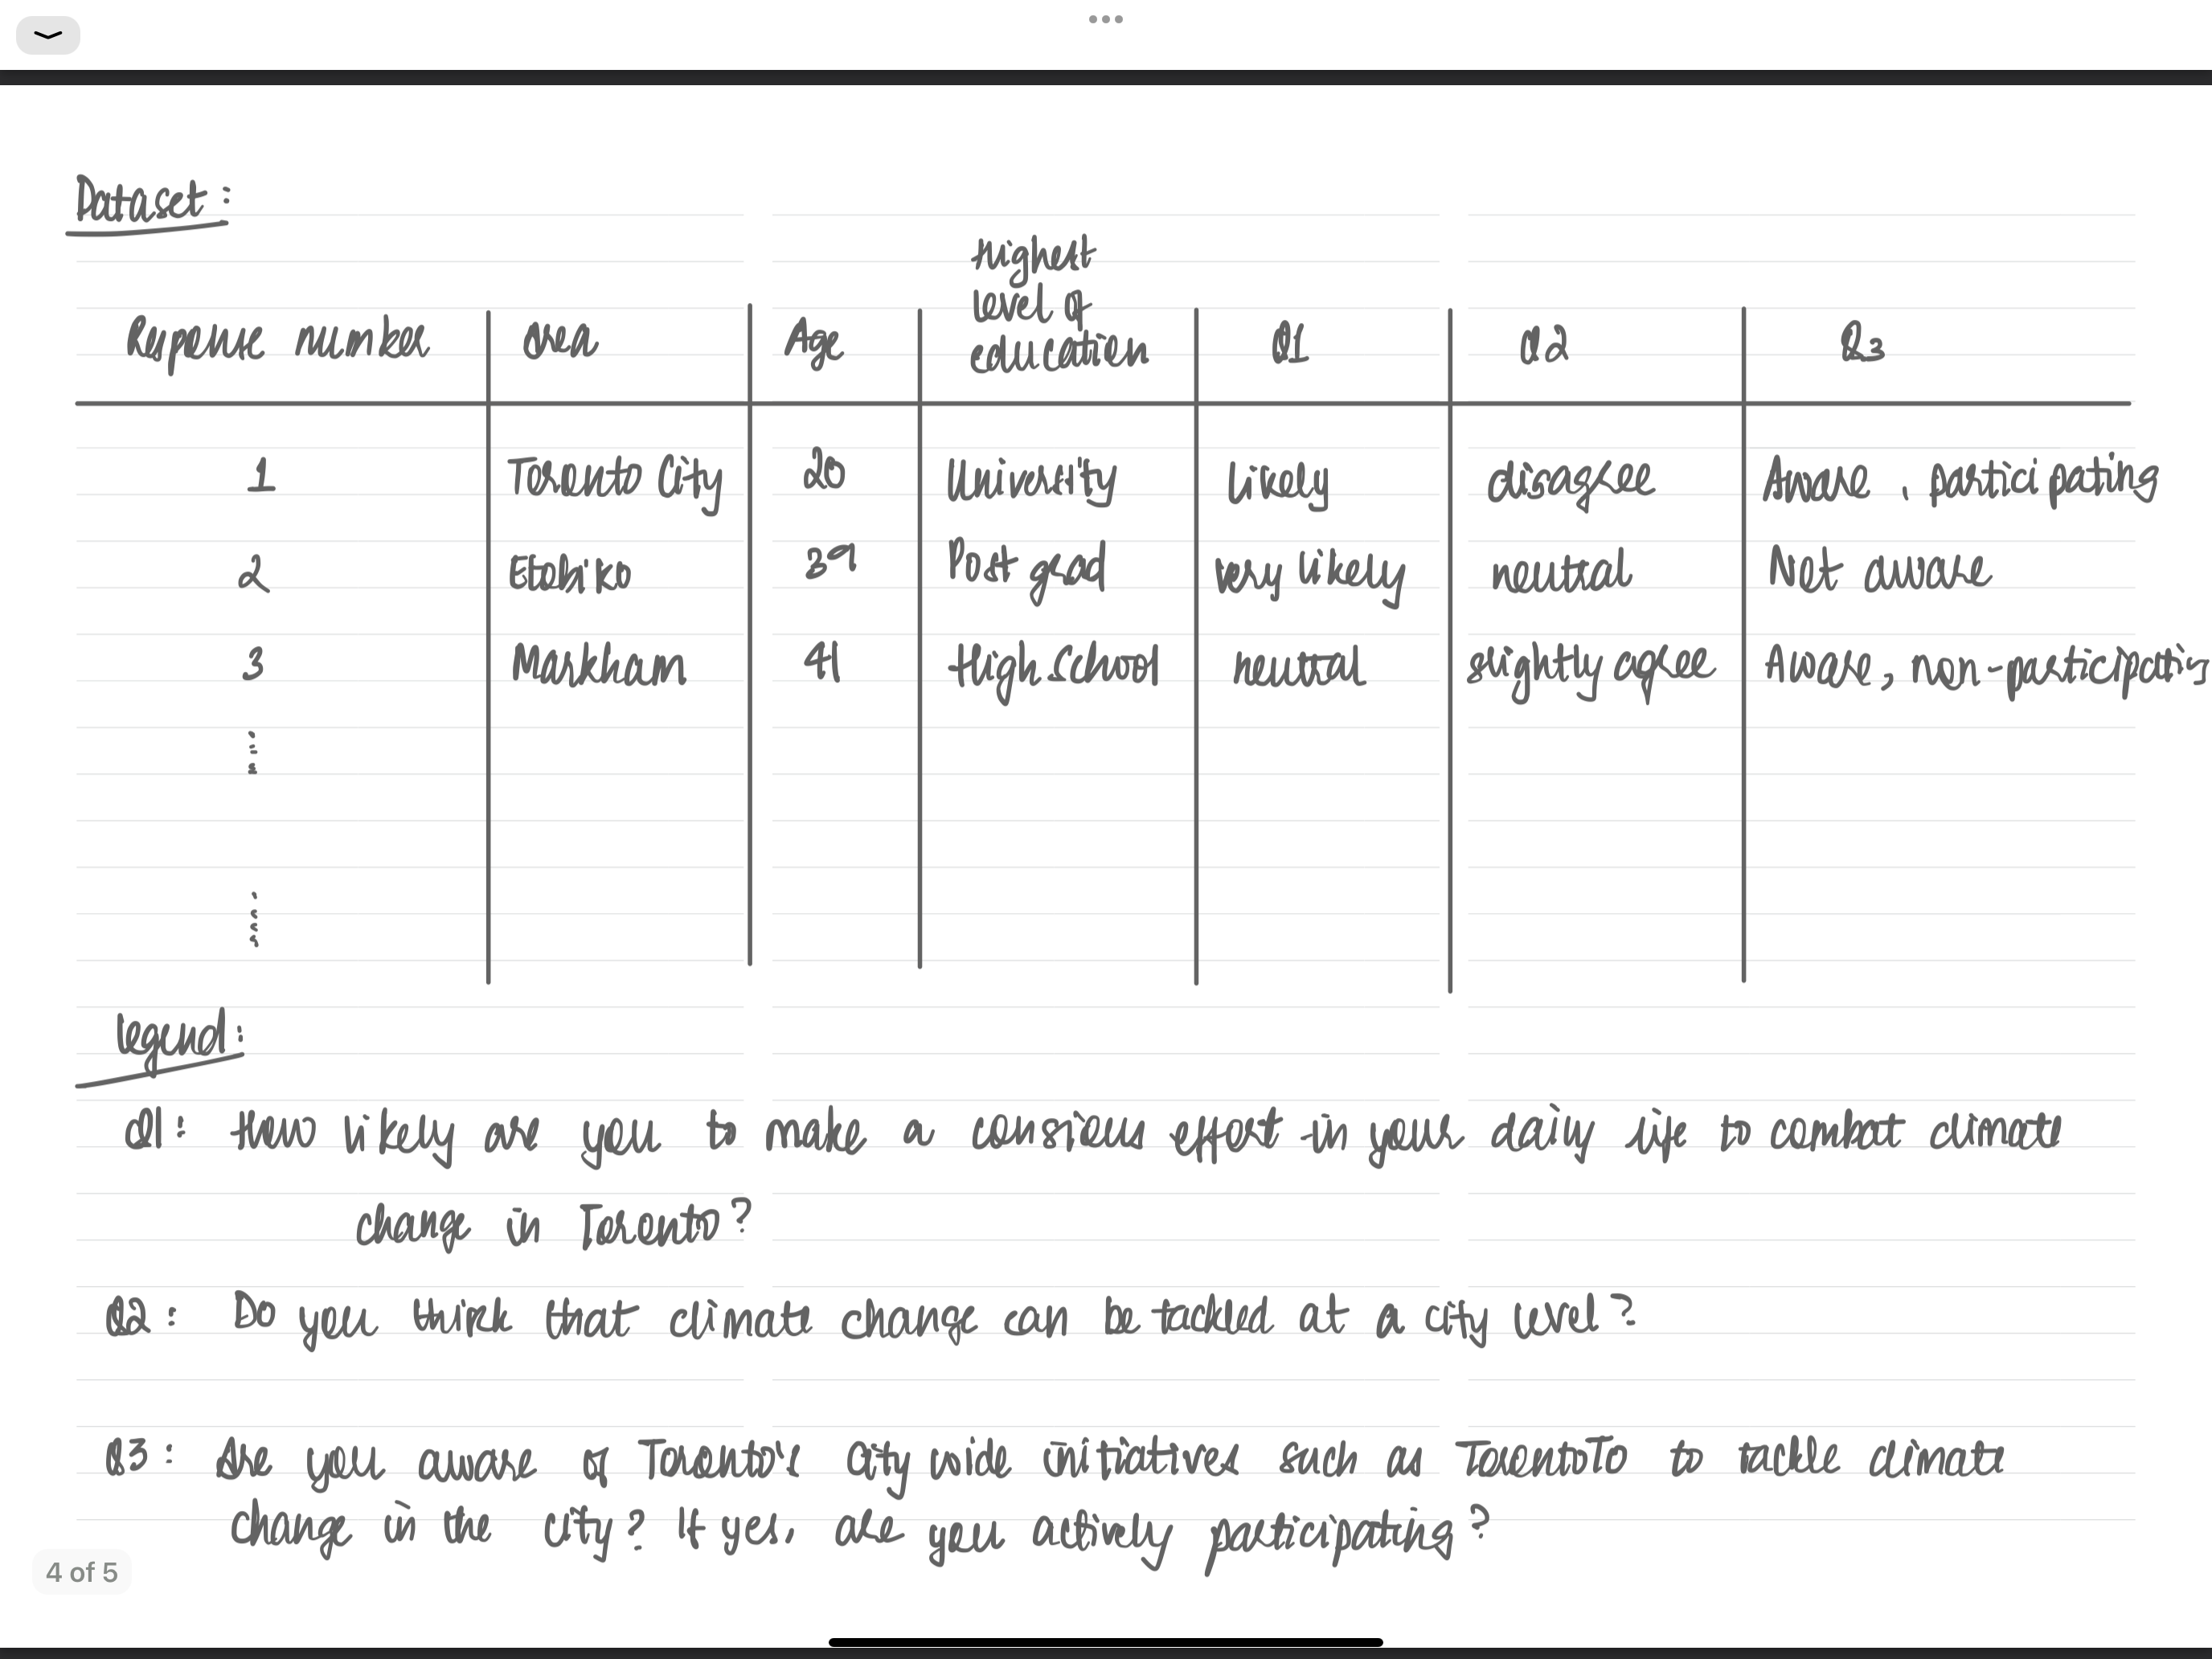 Dataset:
Highest
level of
Response number Area Age education Q1 Q2 Q3
1 Toronto City 20 University likely disagree Aware, participating
2 Etobiko 39 Post grad very likely neutral Not aware
3 Markham 41 High School neutral slightly agree Aware, non-participating
Legend:
Q1: How likely are you to make a consious effort in your daily life to combat climate
change in Toronto?
Q2: Do you think that climate change can be tackled at a city level?
Q3: Are you aware of Toronto's city wide initiatives such as TorontoTO to tackle climate
change in the city? If yes, are you actively participating?
4 of 5